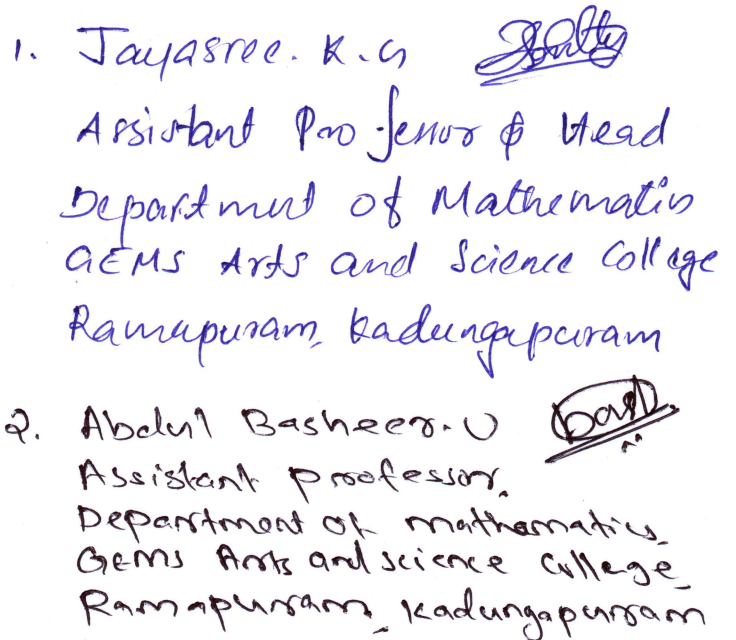 1. Jayasree. K. G
Assistant Professor & Head
Department of Mathematics
GEMS Arts and Science College
Ramapuram, Kadungapuram
2. Abdul Basheer. U
Assistant professor,
Department of mathematics,
GEMS Arts and science college,
Ramapuram, Kadungapuram